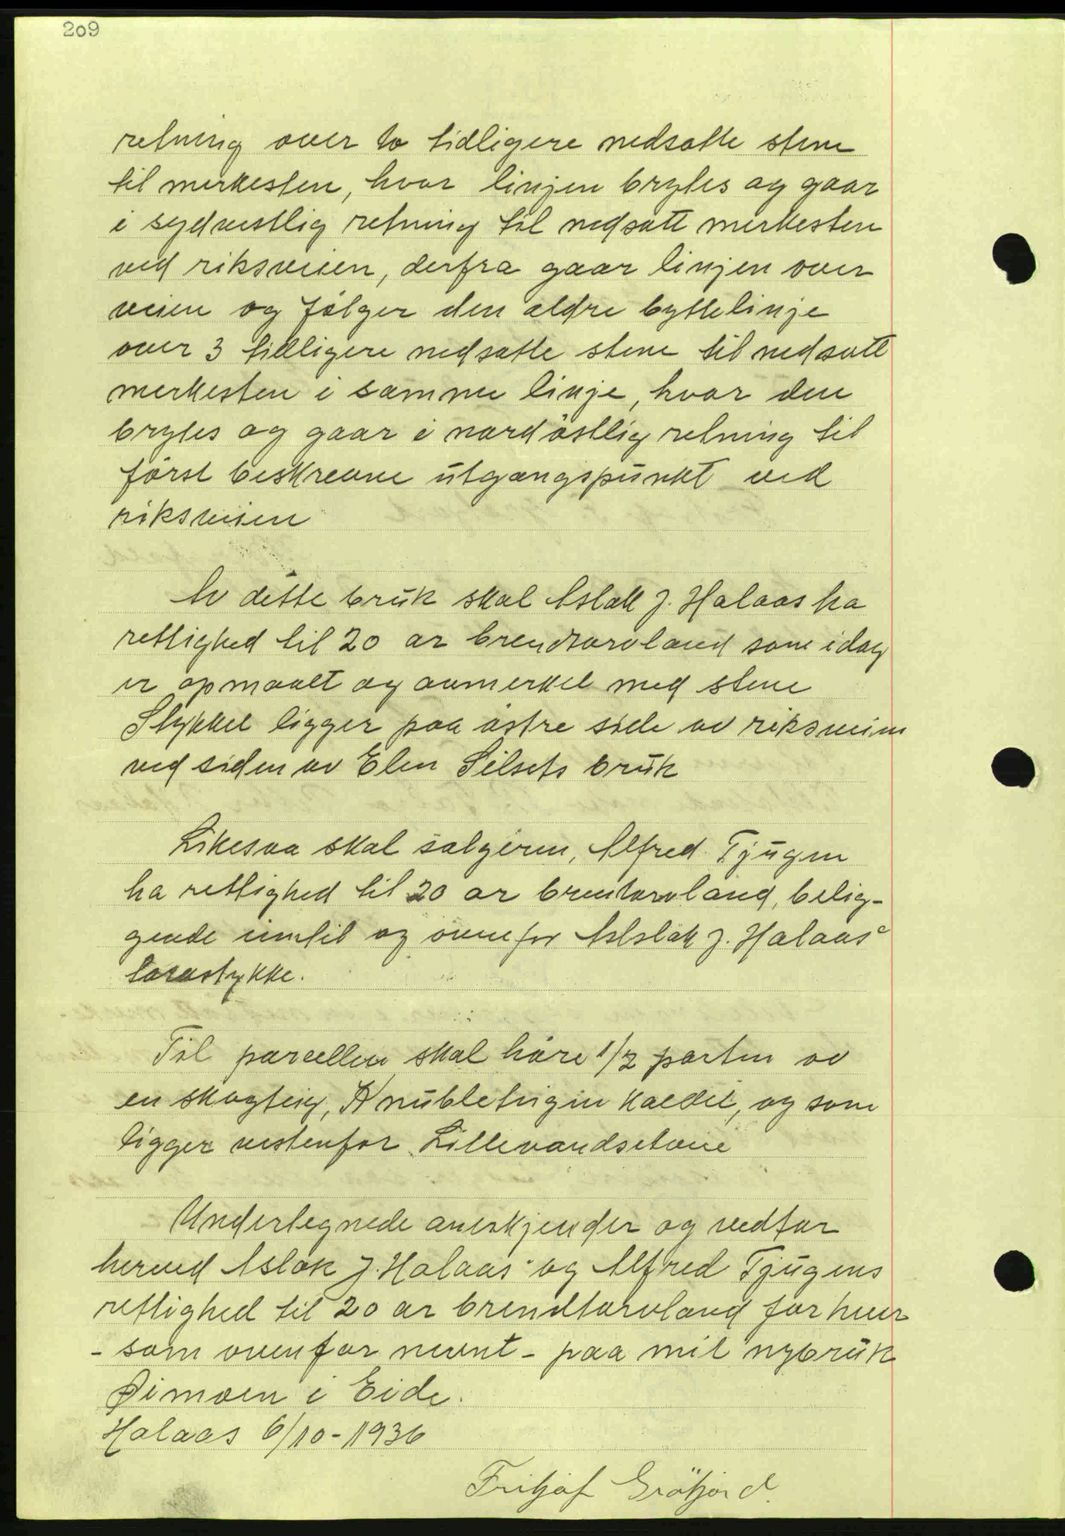 209
retning over to tidligere nedsatte stene
til merkesten, hvor linjen brytes og gaar
i sydvestlig retning til nedsatt merkesten
ved riksveien, derfra gaar linjen over
veien og følger den ældre byttelinje
over 3 tidligere nedsatte stene til nedsatt
merkesten i samme linje, hvor den
brytes og gaar i nordöstlig retning til
först beskrevne utgangspunkt ved
riksveien
Av dette bruk skal Aslak J. Halaas ha
rettighed til 20 ar brendtorvland som idag
er opmaalt og avmerket med stene
Stykket ligger paa östre side av riksveien
ved siden av Elen Silsets bruk
Likesaa skal sælgeren, Alfred Tjugen
ha rettighed til 20 ar brentorvland, belig-
gende inntil og ovenfor Aslak J. Halaas'
torvstykke.
Til parcellen skal høre 1/2 parten av
en skogteig, Knubleteigen kaldet, og som
ligger vestenfor Lillevandsetrene
Undertegnede anerkjender og vedtar
herved Aslak J. Halaas' og Alfred Tjugens
rettighed til 20 ar brendtorvland for hver
- som ovenfor nevnt - paa mit nybruk
Øimoen i Eide.
Halaas 6/10-1936
Fritjof Gröfjord.